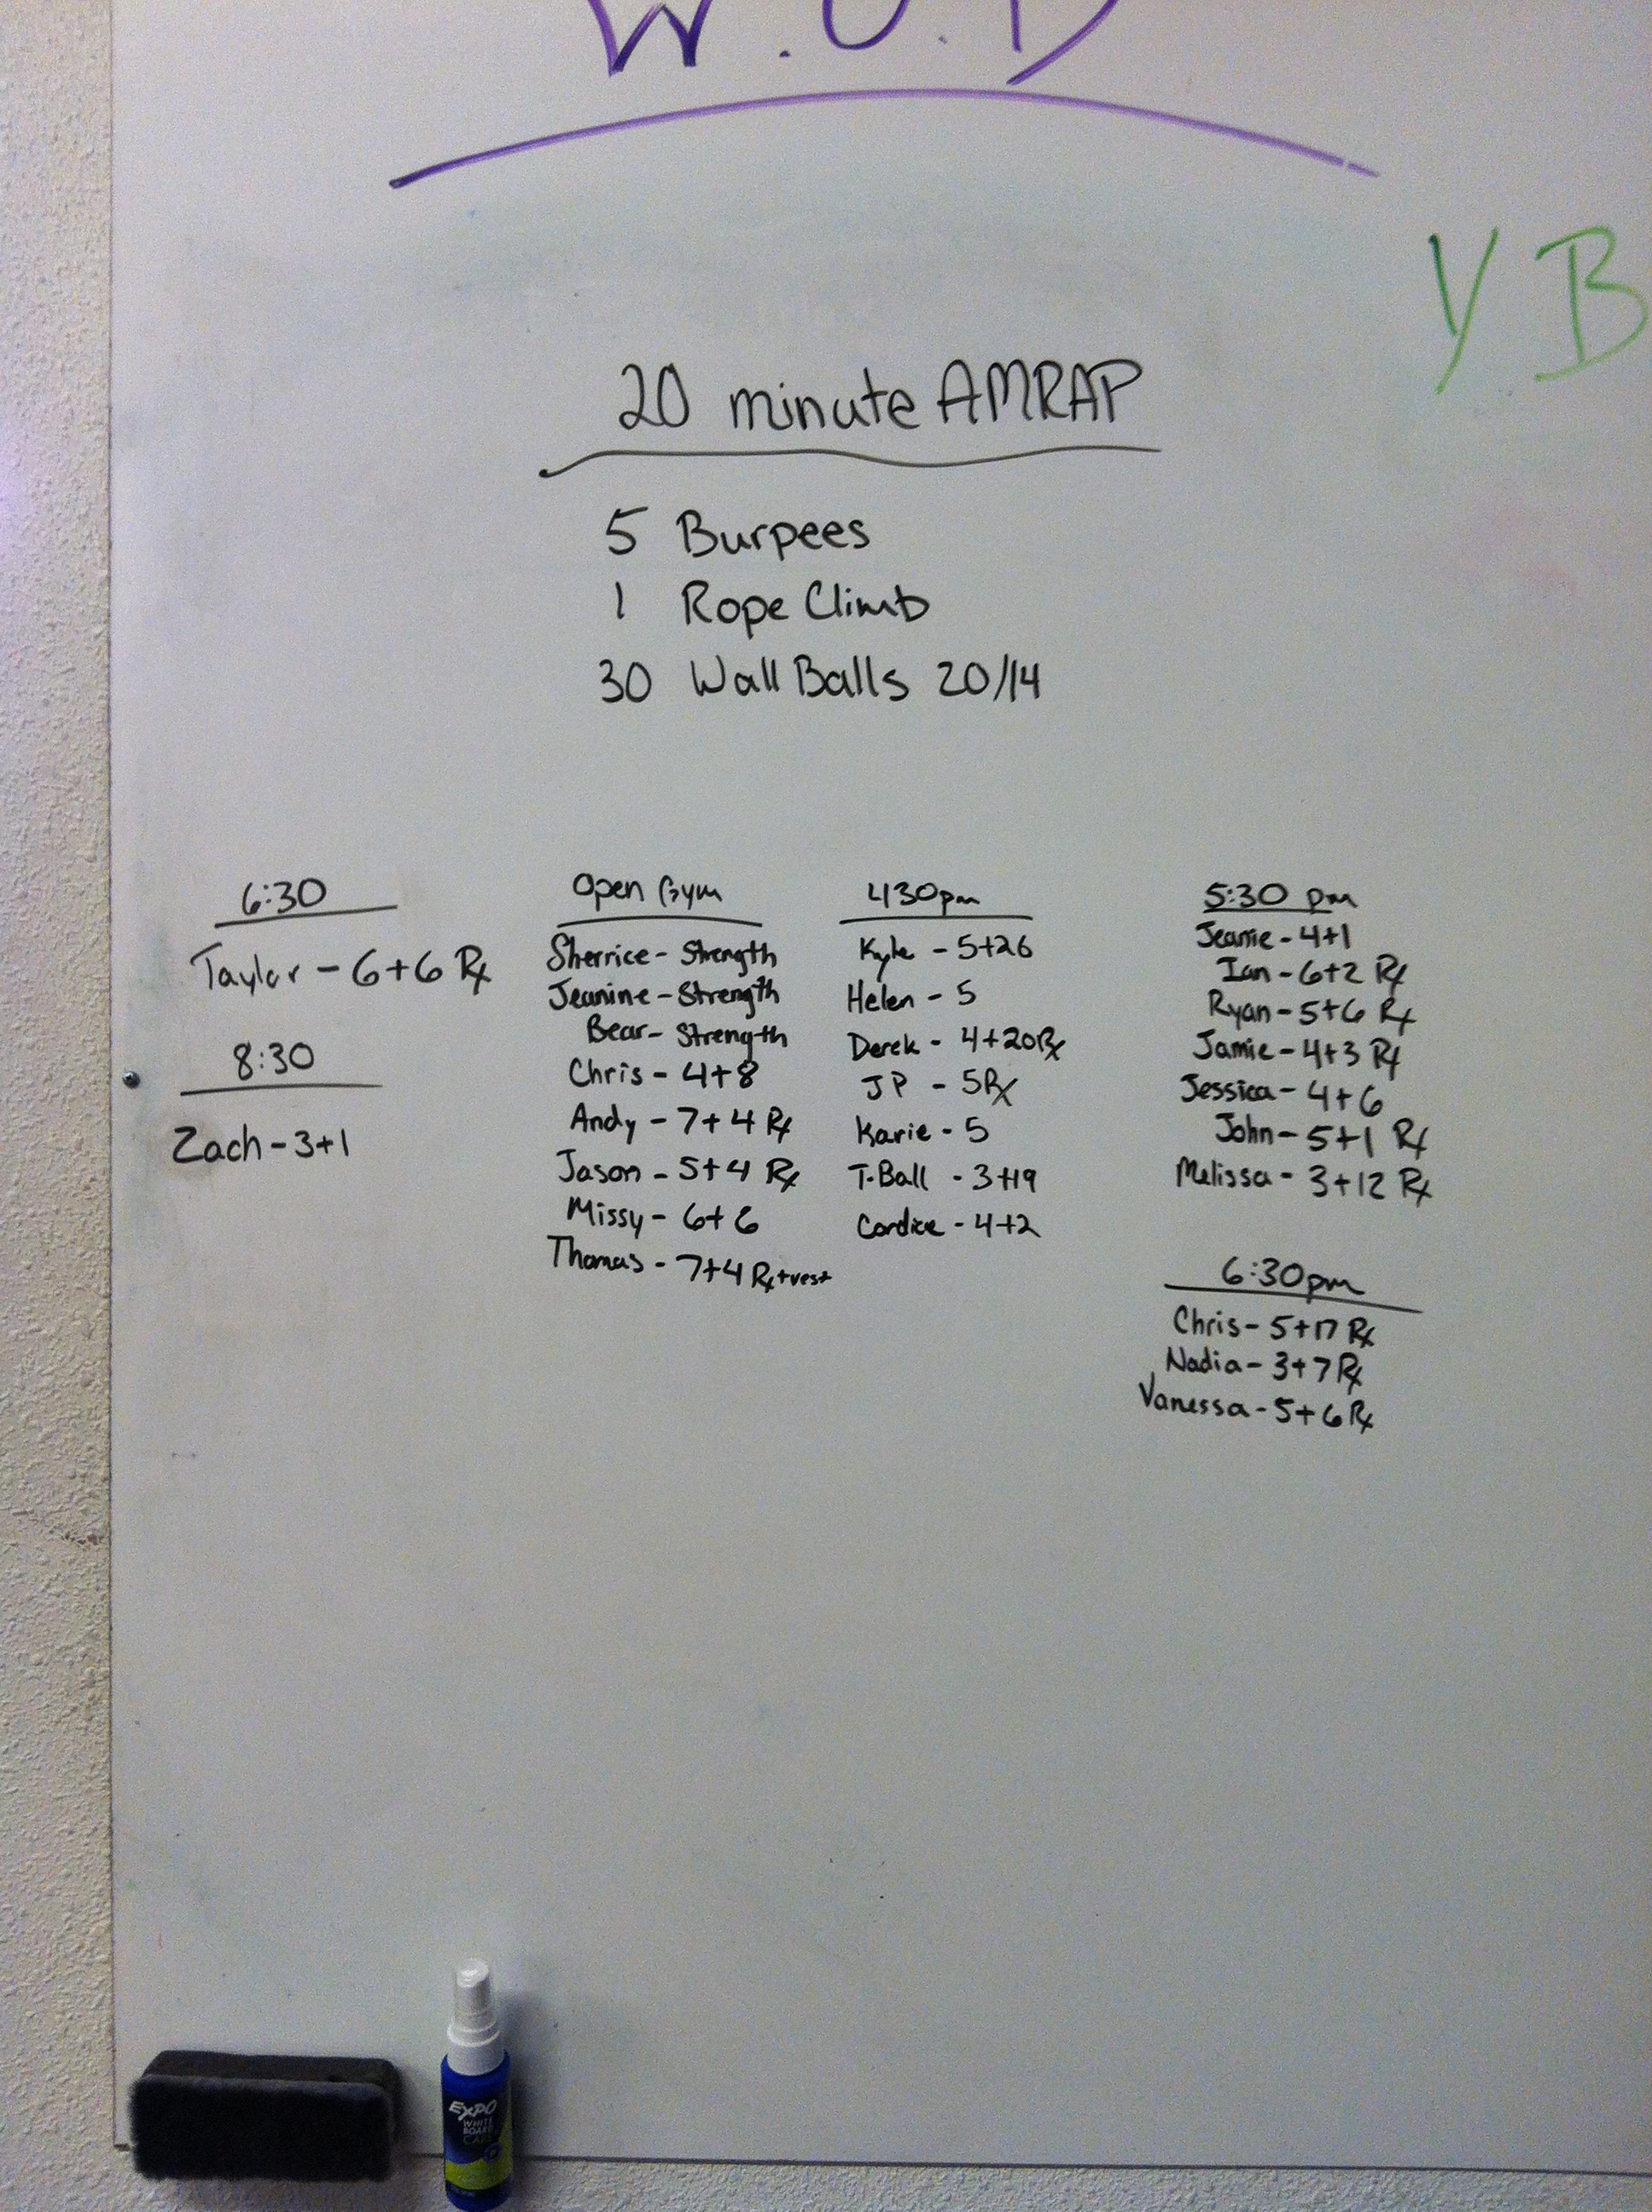 W.O.D
Y B
20 minute AMRAP
5 Burpees
1 Rope Climb
30 Wall Balls 20/14
6:30
Taylor - 6+6 Rx
8:30
Zach - 3+1
Open Gym
Sherrice - Strength
Jeanine - Strength
Bear - Strength
Chris - 4+8
Andy - 7+4 Rx
Jason - 5+4 Rx
Missy - 6+6
Thomas - 7+4 Rx+vest
430pm
Kyle - 5+26
Helen - 5
Derek - 4+20Rx
JP - 5Rx
Karie - 5
T-Ball - 3+19
Candice - 4+2
5:30 pm
Jeanie - 4+1
Ian - 6+2 Rx
Ryan - 5+6 Rx
Jamie - 4+3 Rx
Jessica - 4+6
John - 5+1 Rx
Melissa - 3+12 Rx
6:30pm
Chris - 5+17 Rx
Nadia - 3+7 Rx
Vanessa - 5+6 Rx
EXPO
WHITE
BOARD
CARE